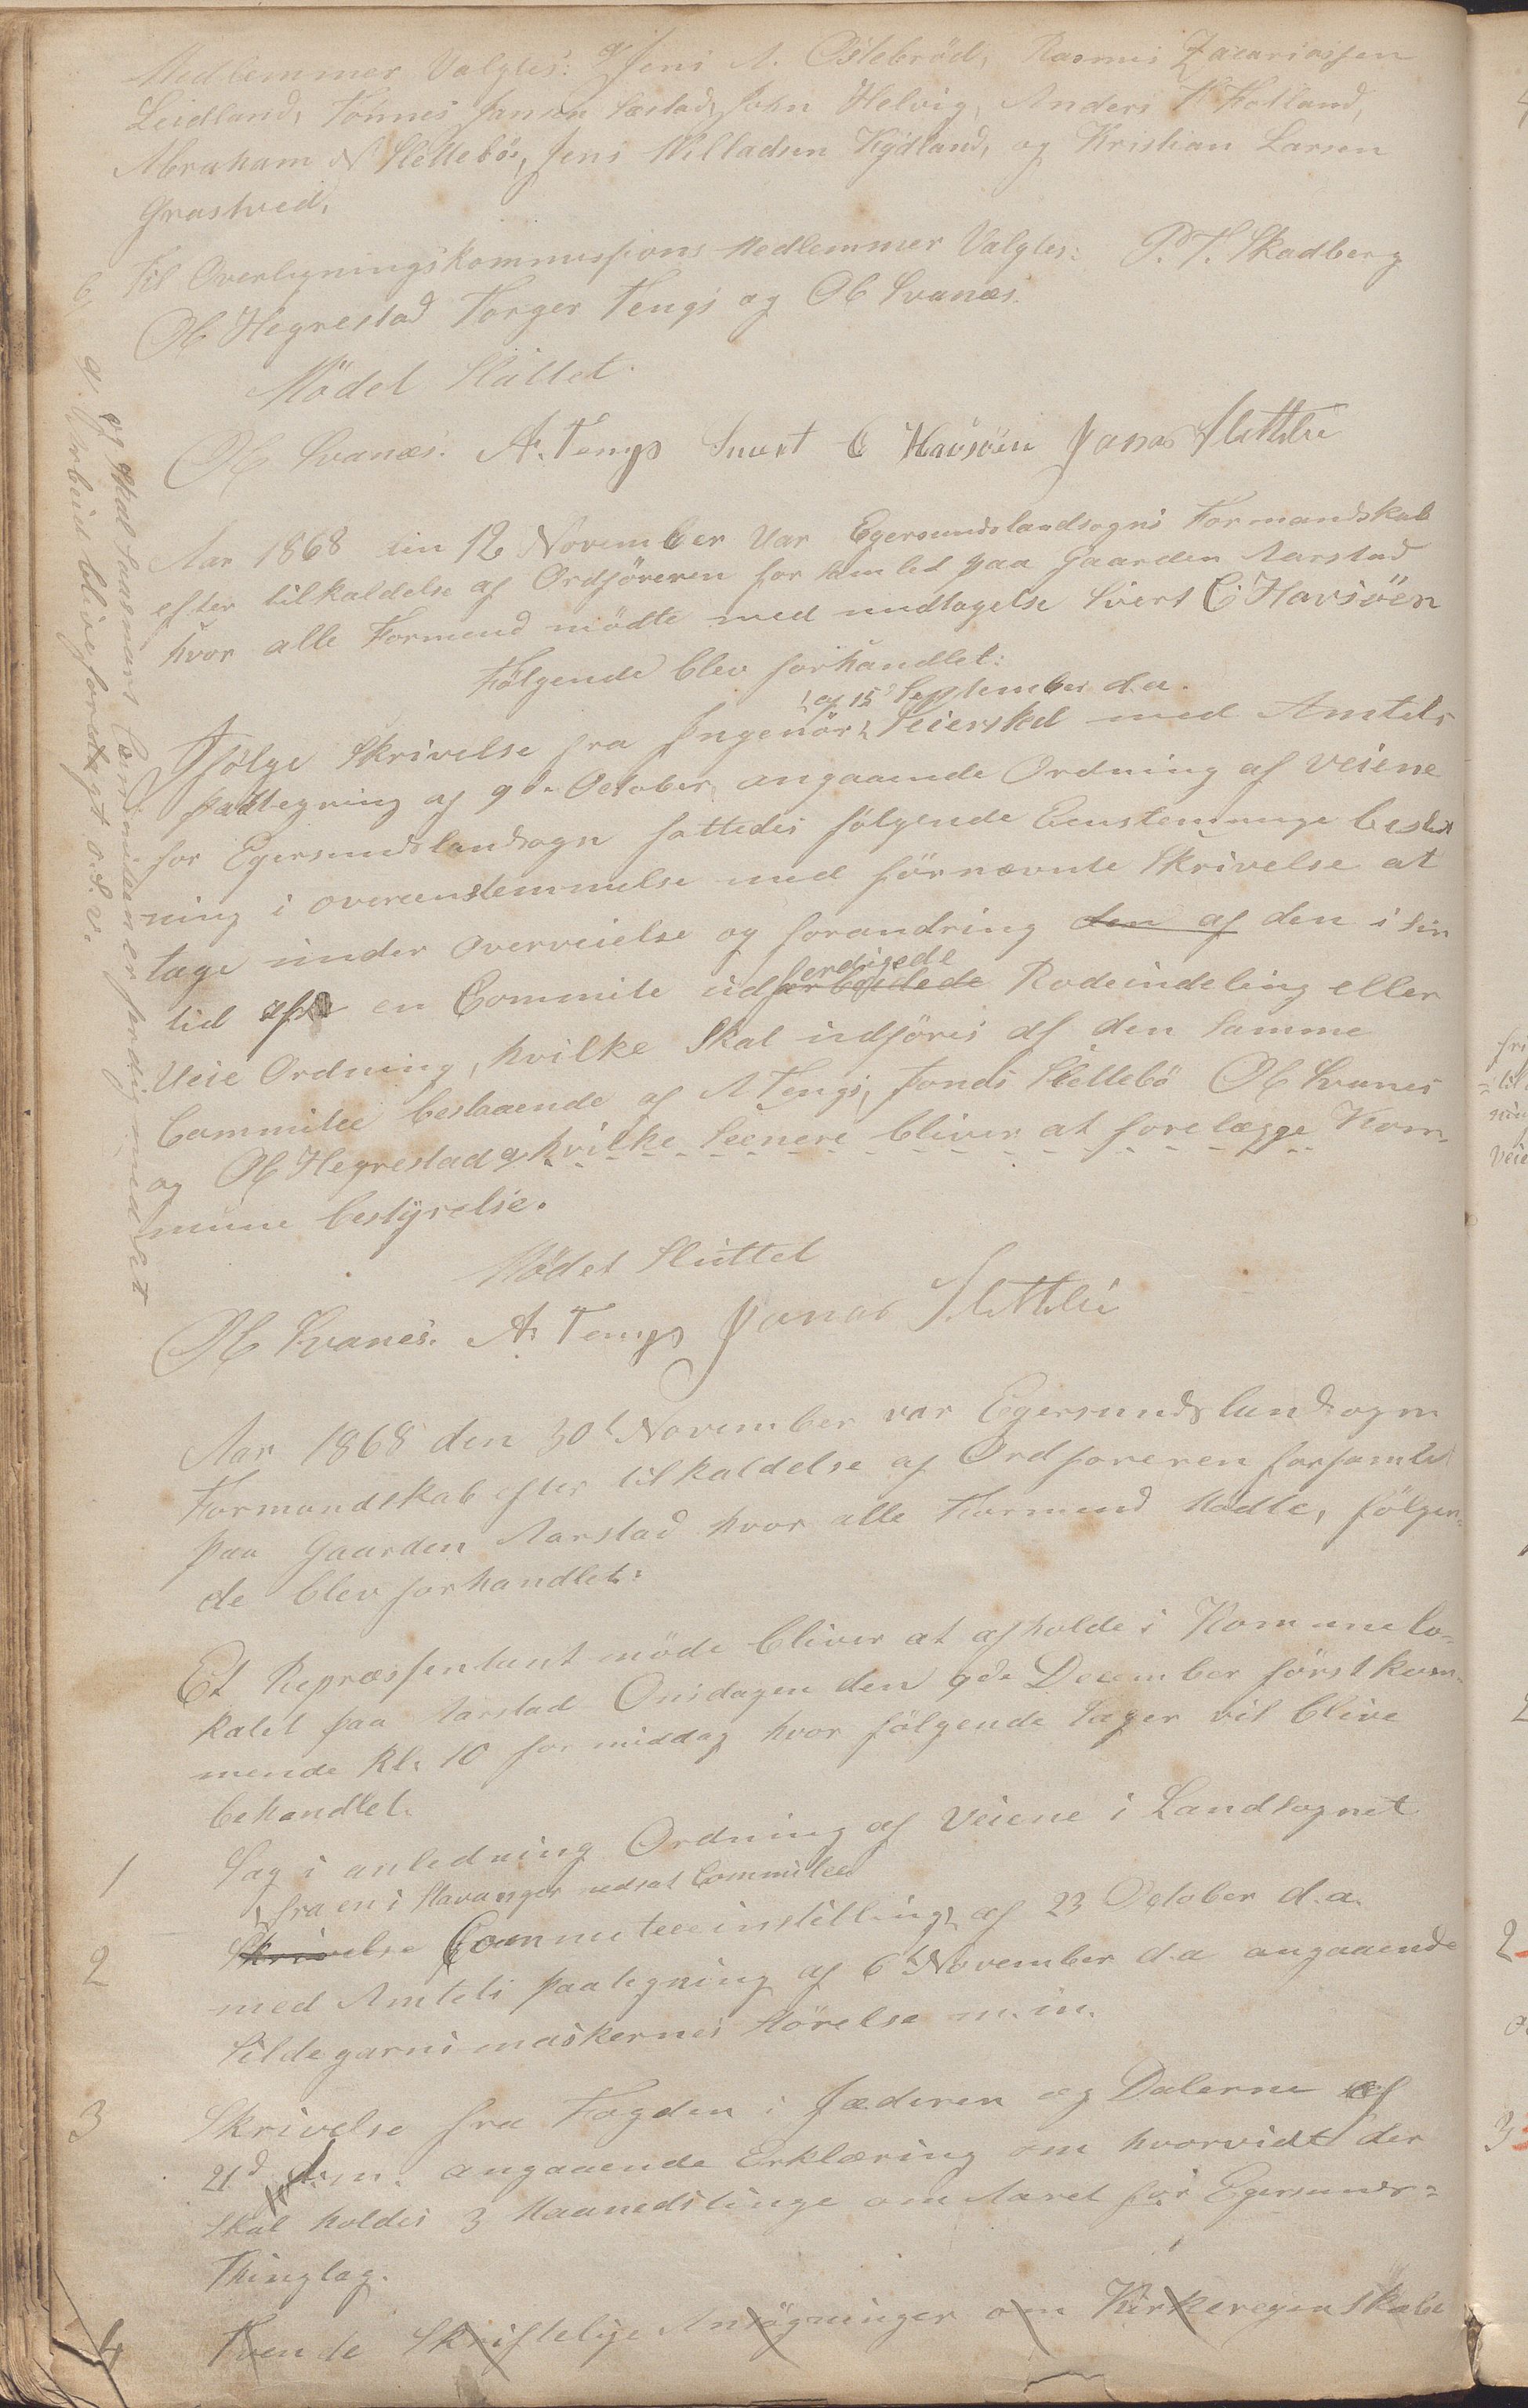 Medlemmer Valgtes: Jens A. Östebröd, Rasmus Zacariassen
Leidland, Tönnes Jansen Sæstad, John Helvig, Anders T Hotland,
Abraham N Slettebö, Jens Willadsen Kydland, og Kristian Larsen
Grastved,
6, Til Overligningskommissions Medlemmer Valgtes: P. T. Skadberg
Ol Hegrestad Torger Tengs og Ol Svanæs.
Mödet Sluttet.
Ol Svanæs. A. Tengs Sivert C Havsöen Jonas Slettebö
Aar 1868 den 12 November Var Egersundslandsogns Formandskab
efter tilkaldelse af Ordföreren forsamlet paa Gaarden Aarstad
hvor alle Formend mödte med undtagelse Sivert C Havsöen
Fölgende blev forhandlet:
af 15d September d.a.
Ifölge Skrivelse fra Ingenör Seierskel med Amtets
paategning af 9de October, angaaende Ordning af Veiene
for Egersundslandsogn fattedes fölgende Eenstemmige beslut
ning i overeenstemmelse med förnævnte Skrivelse at
tage under Overveielse og forandring den af den i sin
ferdigede
tid af en Commite udarbeidede Rodeindeling eller
Veie Ordning, hvilke Skal udföres af den Samme
Commitee bestaaende af A Tengs, Jonas Slettebö Ol Svanes
og Ol Hegrestad og hvilke Seenere bliver at forelægge Kom-
mune bestyrelse.
og Skal Saasnart Comiteen er ferdig med det
Arbeid blive foretagt o.s.v.
Mödet Sluttet
Ol Svanes. A. Tengs Jonas Slettebö
Aar 1868 den 30t November var Egersunds landsogns
Formandskab efter tilkaldelse af Ordföreren forsamlet
paa Gaarden Aarstad hvor alle Formend Mödte, fölgen-
de blev forhandlet:
Et Repræssentant möde bliver at afholde i Kommunelo-
kalet paa Aarstad Onsdagen den 9de December förstkom-
mende Kl. 10 formiddag hvor fölgende Sager vil blive
behandlet.
1 Sag i anledning Ordning af Veiene i Landsognet
fra en i Stavanger nedsat Commitee
2 Skrivelse Commiteeinstilling af 23 October d.a.
med Amtets paategning af 6t November d.a angaaende
Sildegarns maskernes Störelse m.m.
3 Skrivelse fra Fogden i Jæderen og Dalerne af
21d angaaende Erklæring om hvorvidt der
Skal holdes 3 Maanedstinge om Aaret for Egersunds-
Thinglag.
4 Tvende Skriftelige Ansögninger om Kirkeregenskabe